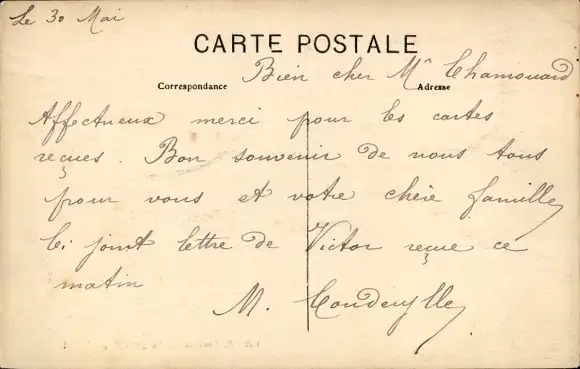 Le 30 Mai
CARTE POSTALE
Bien cher Mr Chamouard
Correspondance
Adresse
Affectueux merci pour les cartes
reçues. Bon souvenir de nous tous
pour vous et votre chère famille
Ci joint lettre de Victor reçue ce
matin
M.